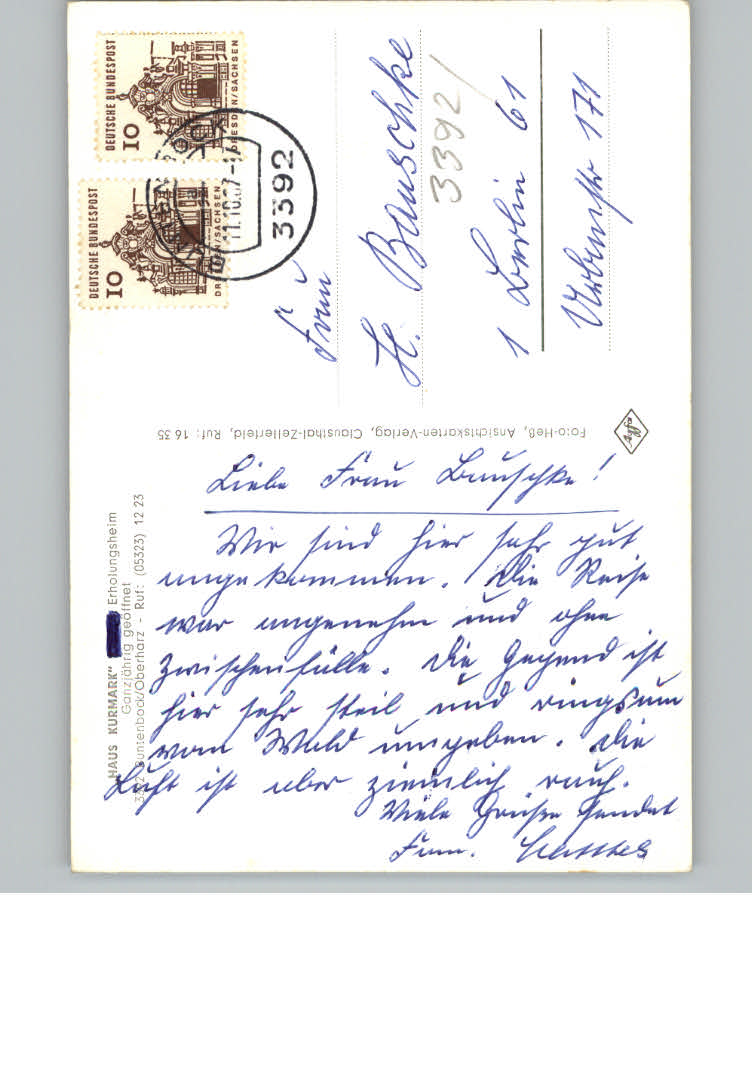 Liebe Frau Bauschke!
Wir sind hier sehr gut
angekommen. Die Reise
war angenehm und ohne
Zwischenfälle. Die Gegend ist
hier sehr steil und ringsum
vom Wald umgeben. Die
Luft ist aber ziemlich rauh.
Viele Grüße sendet
Fam.
HAUS KURMARK" Erholungsheim
Ganzjährig geöffnet
3392 Buntenbock/Oberharz - Ruf: (05323) 12 23
Foto-Heß, Ansichtskarten-Verlag, Clausthal-Zellerfeld, Ruf: 16 35
Agfa
DEUTSCHE BUNDESPOST
10
DRESDEN/SACHSEN
DEUTSCHE BUNDESPOST
10
DRESDEN/SACHSEN
3392
BUNTENBOCK
11.10.67-17
Frau
H. Bauschke
3392/
1 Berlin 61
Urbanstr 171